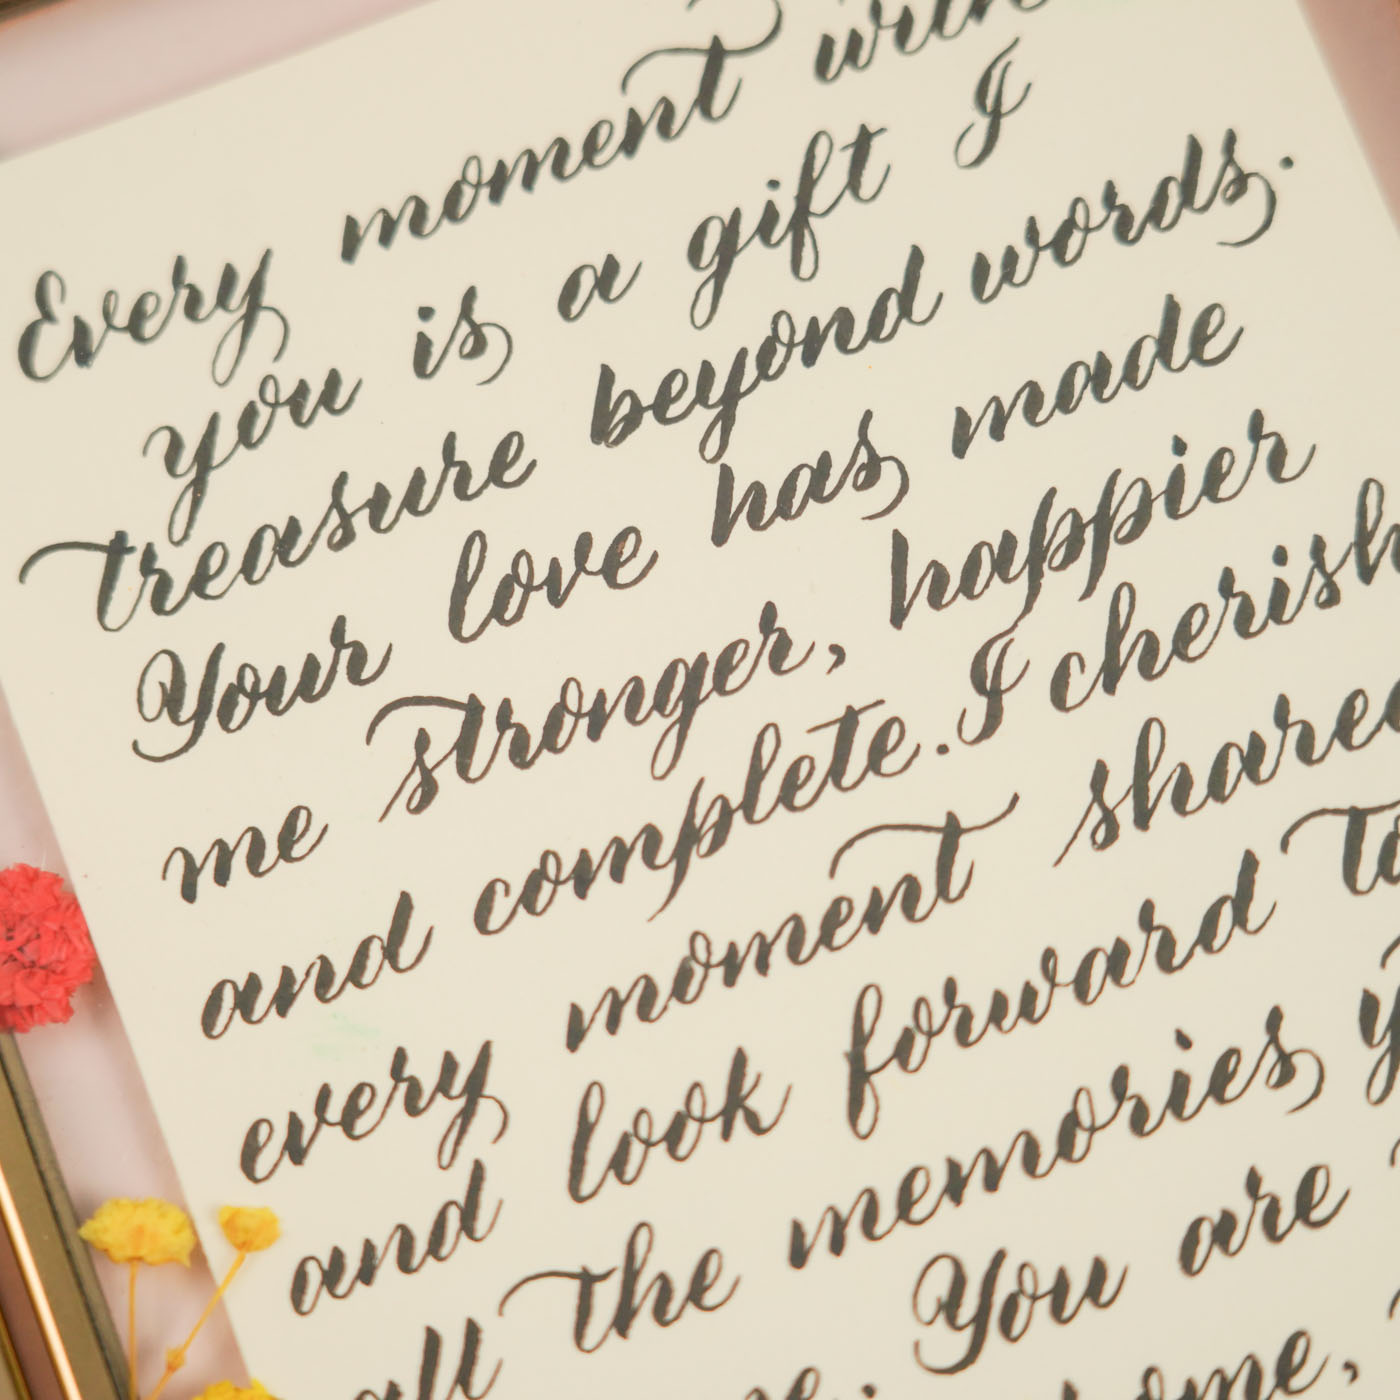 Every moment with
you is a gift I
treasure beyond words.
Your love has made
me stronger, happier
and complete. I cherish
every moment shared
and look forward to
all the memories
You are